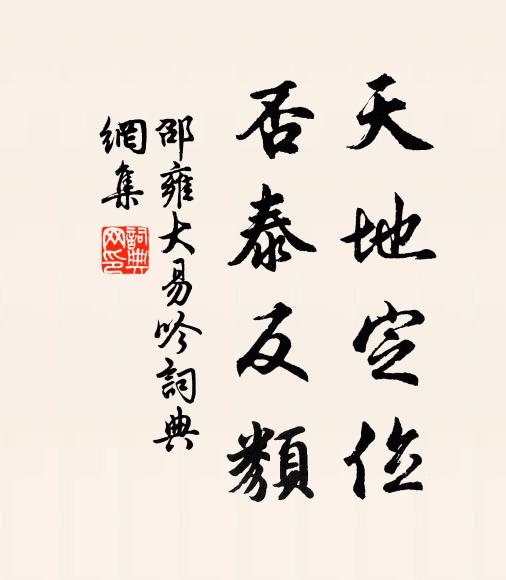 天地定位
否泰反類
邵雍大易吟詞典
網集
詞典
网印